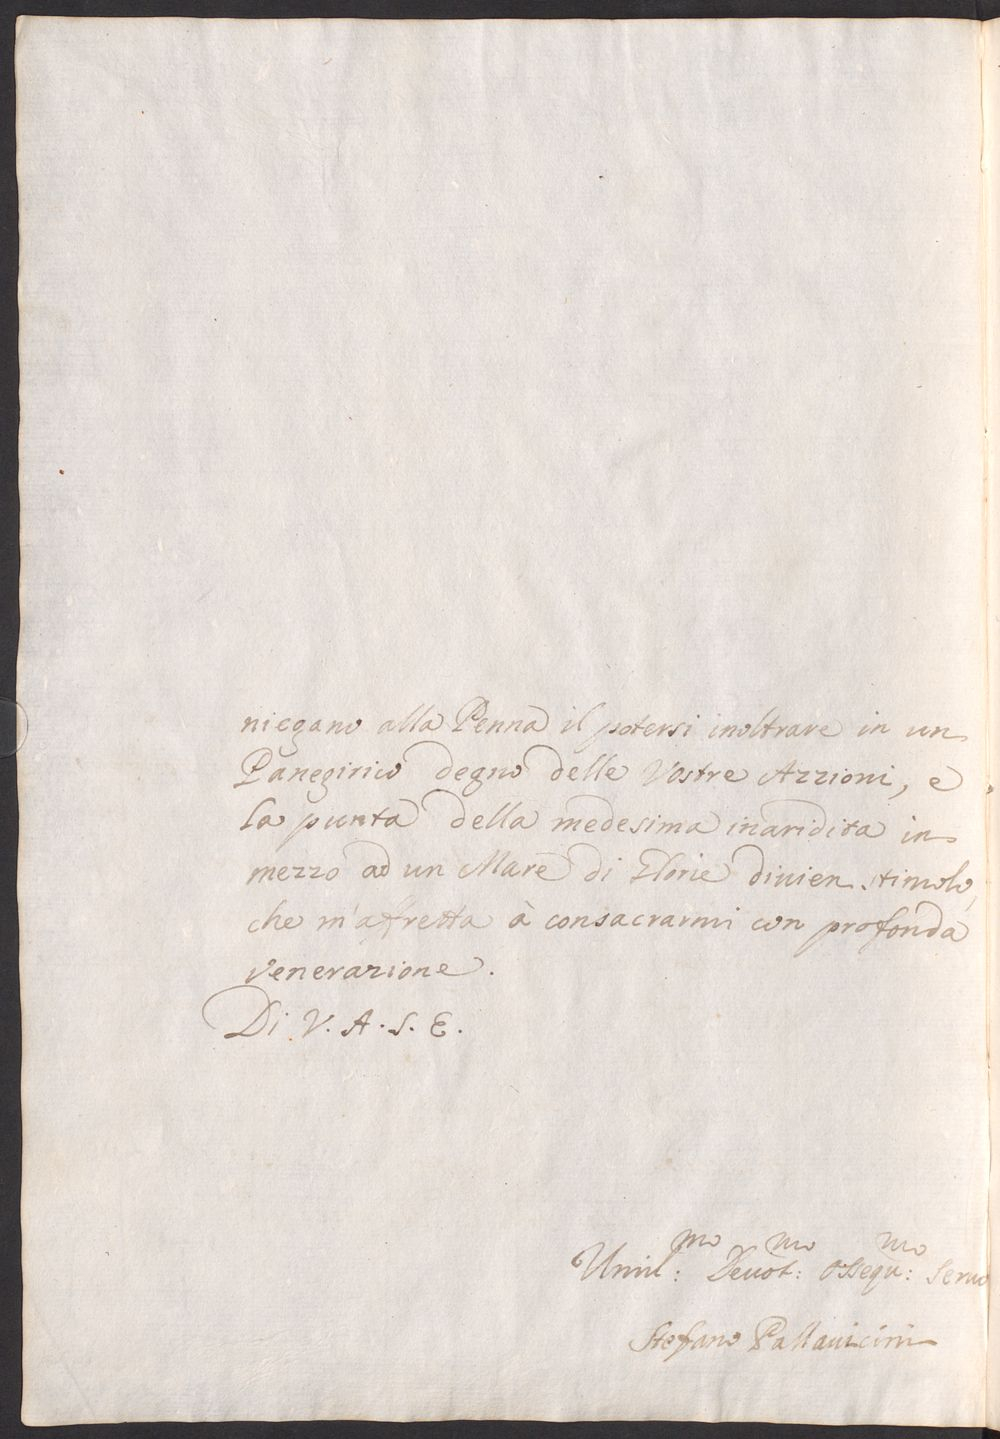 niegano alla Penna il potersi inoltrare in un
Panegirico degno delle Vostre Azzioni, e
la punta della medesima inaridita in
mezzo ad un Mare di Glorie divien stimolo,
che m'affretta à consacrarmi con profonda
venerazione.
Di V. A. S. E.
Umil:mo Devot:mo Ossequ:mo Servo
Stefano Pallavicini